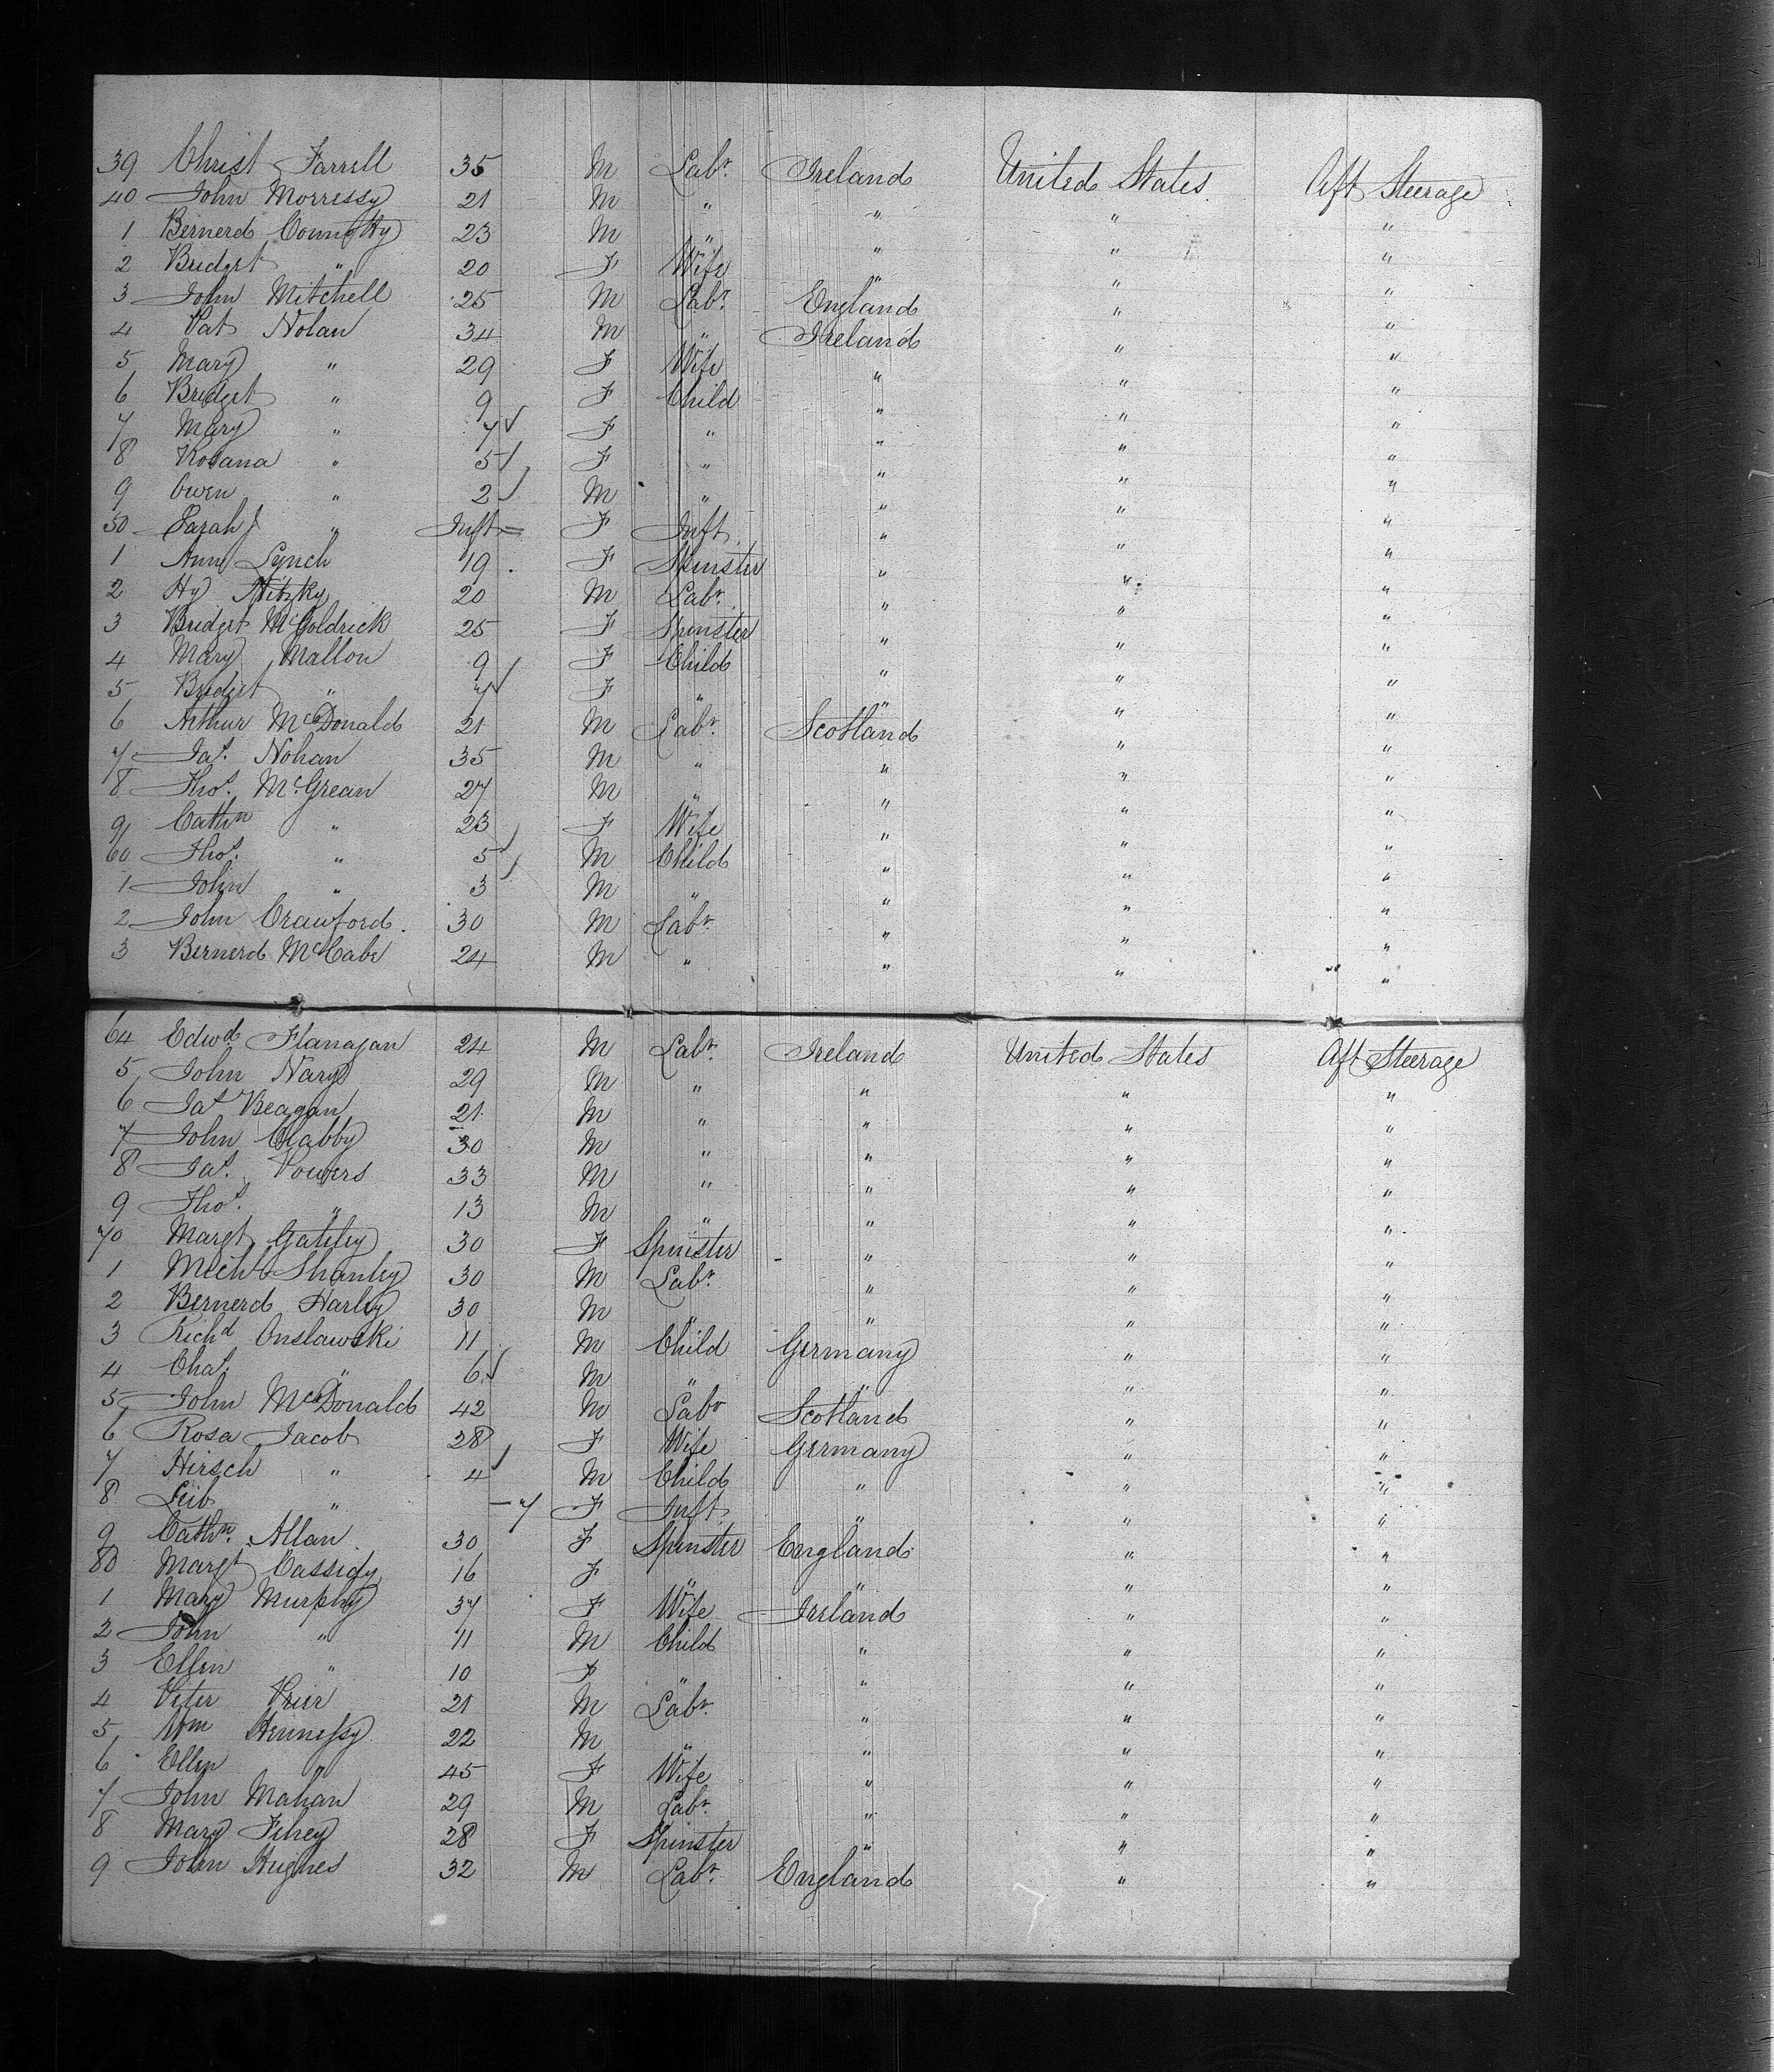 39 Christ Farrell 35 M Labr. Ireland United States Aft Steerage
40 John Morressy 21 M " " " "
1 Bernerd 23 M " " " "
2 Bridget " 20 F Wife " " "
3 John Mitchell 25 M Labr. England " "
4 Pat Nolan 34 M " Ireland " "
5 Mary " 29 F Wife " " "
6 Bridget " 9 F Child " " "
7 Mary " 7 F " " " "
8 Rosana " 5 F " " " "
9 Owen " 2 M " " " "
50 Sarah J " Inft F Inft. " " "
1 Ann Lynch 19 F Spinster " " "
2 Hy 20 M Labr. " " "
3 Bridget McGoldrick 25 F Spinster " " "
4 Mary Mallon 9 F Child " " "
5 Bridget " 7 F " " " "
6 Arthur McDonald 21 M Labr. Scotland " "
7 Jas. Nohan 35 M " " " "
8 Thos. McGrean 27 M " " " "
9 Cathn " 23 F Wife " " "
60 Thos. " 5 M Child " " "
1 John " 3 M " " " "
2 John Crawford. 30 M Labr. " " "
3 Bernerd McCabe 24 M " " " "
64 Edwd. Flanagan 24 M Labr. Ireland United States Aft Steerage
5 John Nary 29 M " " " "
6 Jas Beagan 21 M " " " "
7 John Clabby 30 M " " " "
8 Jas. Powers 33 M " " " "
9 Thos. " 13 M " " " "
70 Margt Gateley 30 F Spinster " " "
1 Michl Shanley 30 M Labr. " " "
2 Bernerd Harley 30 M " " " "
3 Richd Onslawski 11 M Child Germany " "
4 Chas. " 6 M " " " "
5 John McDonald 42 M Labr Scotland " "
6 Rosa Jacob 28 F Wife Germany " "
7 Hirsch " 4 M Child " " "
8 Leib " 7 F Inft. " " "
9 Cathn. Allan 30 F Spinster England " "
80 Margt Cassidy 16 F " " " "
1 Mary Murphy 37 F Wife Ireland " "
2 John " 11 M Child " " "
3 Ellen " 10 F " " " "
4 Peter Prier 21 M Labr. " " "
5 Wm Hennessy 22 M " " " "
6 Ellen " 45 F Wife " " "
7 John Mahan 29 M Labr. " " "
8 Mary Fihey 28 F Spinster " " "
9 John Hughes 32 M Labr. England " "